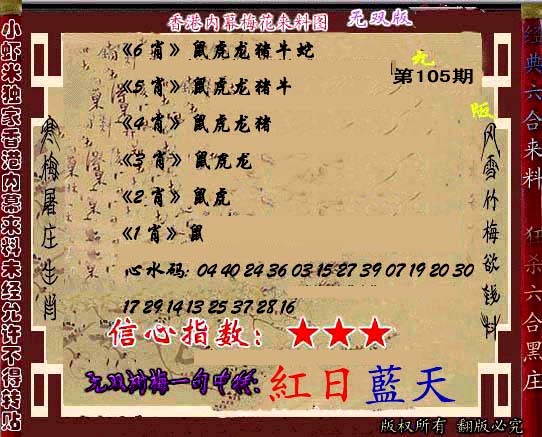 香港内幕梅花来料图 无双版
小虾米独家香港内幕来料未经允许不得转贴
经典六合来料 狂杀六合黑庄
九
版
第105期
寒梅屠庄生肖
风雪竹梅欲钱料
《6 肖》 鼠虎龙猪牛蛇
《5 肖》 鼠虎龙猪牛
《4 肖》 鼠虎龙猪
《3 肖》 鼠虎龙
《2 肖》 鼠虎
《1 肖》 鼠
心水码: 04 40 24 36 03 15 27 39 07 19 20 30
17 29 14 13 25 37 28 16
信心指数: ★★★
一句中特: 紅日藍天
版权所有 翻版必究